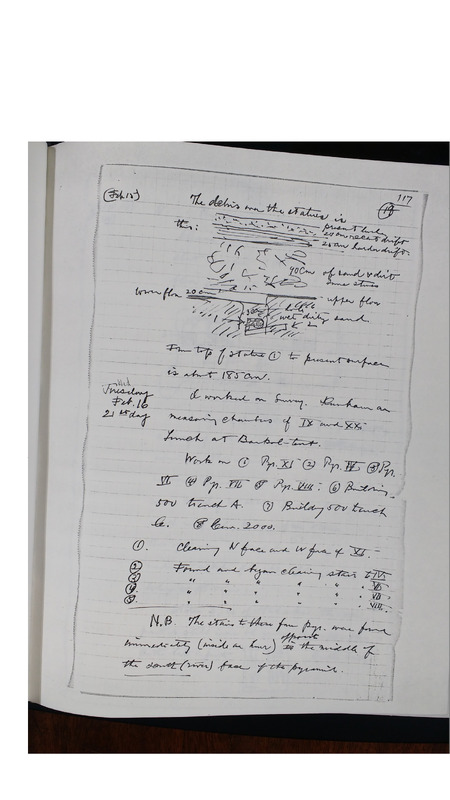 117
(Feb. 15)
The debris over the statues is
thus:
present surface
20 cm recent drift
25 cm harder drift
90 cm of sand & dirt
some stones
lower floor 20 c
upper floor
wet dirty sand
From top of statue ① to present surface
is about 185 cm.
Tuesday
Feb. 16
21st day
I worked on Survey. Dunham on
measuring chambers of IX and XX.
Lunch at Barkal-tent.
Work on ① Pyr. XI ② Pyr. IV ③ Pyr.
VI ④ Pyr. VII ⑤ Pyr. VIII. ⑥ Building
500 trench A. ⑦ Building 500 trench
①. Clearing N face and W face of XI.
② Found and began clearing stairs to IV.
③ " " " " " " VI
④ " " " " " " VII
⑤ " " " " " " VIII
N.B. The stairs to these four Pyr. were found
immediately (inside an hour) opposite the middle of
the south (river) face of the pyramid.